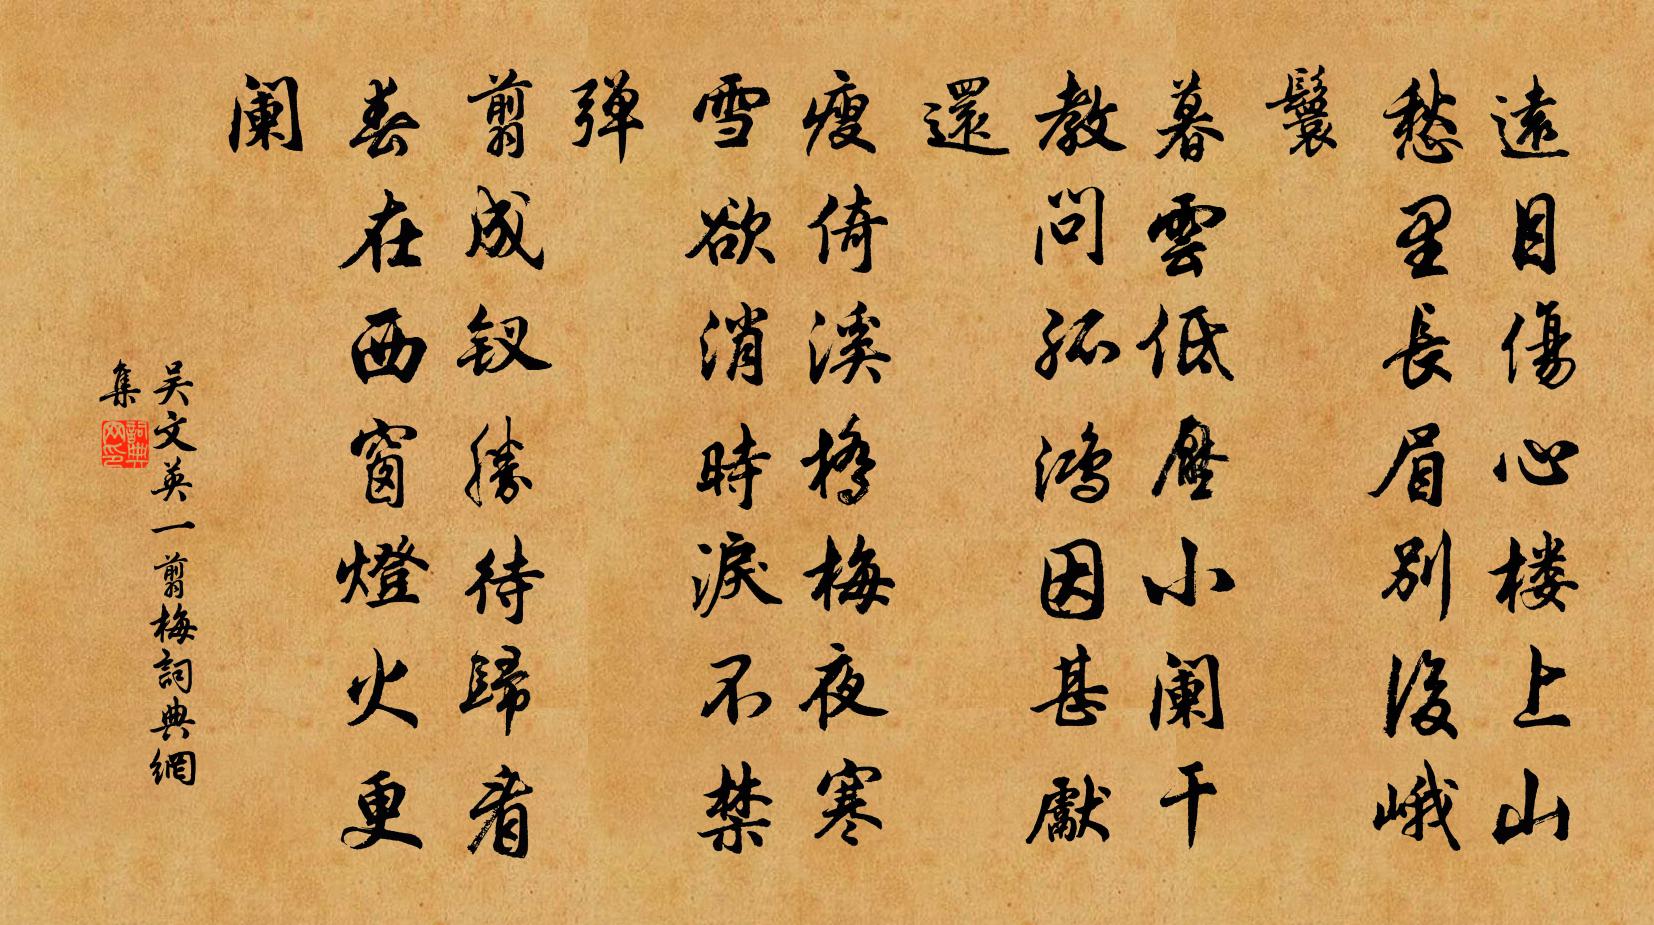 遠目傷心楼上山
愁里長眉別後峨
鬟
暮雲低壓小阑干
教問孤鴻因甚獻
還
瘦倚溪橋梅夜寒
雪欲消時淚不禁
弹
翦成钗勝待歸看
春在西窗燈火更
阑
吴文英一翦梅詞典網
集
詞典
网印